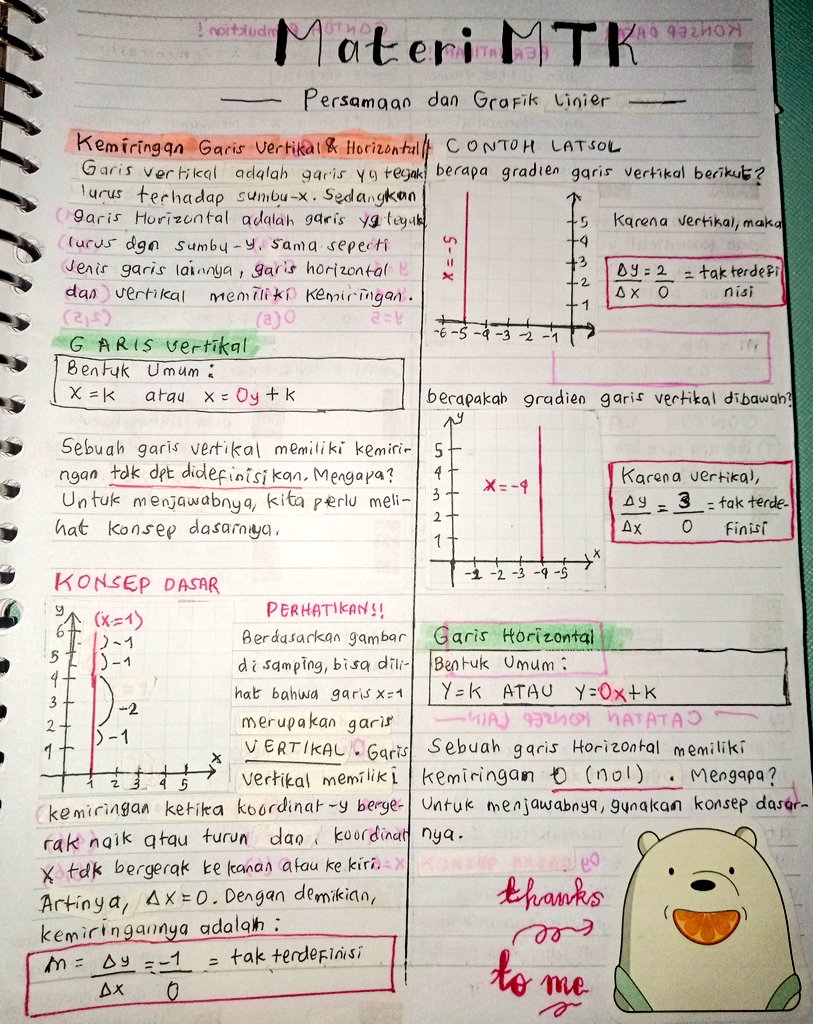 Materi MTK
Persamaan dan Grafik Linier
Kemiringan Garis Vertikal & Horizontal
Garis vertikal adalah garis yg tegak
lurus terhadap sumbu-x. Sedangkan
garis Horizontal adalah garis yg tegak
lurus dgn sumbu-y. sama seperti
jenis garis lainnya, garis horizontal
dan vertikal memiliki kemiringan.
GARIS vertikal
Bentuk Umum :
x = k atau x = 0y + k
Sebuah garis vertikal memiliki kemiri-
ngan tdk dpt didefinisikan. Mengapa?
Untuk menjawabnya, kita perlu meli-
hat konsep dasarnya.
KONSEP DASAR
y
(x=1)
6
5
4
3
2
1
-1
-1
-2
-1
1 2 3 4 5
x
PERHATIKAN!!
Berdasarkan gambar
di samping, bisa dili-
hat bahwa garis x=1
merupakan garis
VERTIKAL. Garis
vertikal memiliki
kemiringan ketika koordinat-y berge-
rak naik atau turun dan koordinat
x tdk bergerak ke kanan atau ke kiri.
Artinya, Δx = 0. Dengan demikian,
kemiringannya adalah :
m = Δy = -1 = tak terdefinisi
Δx 0
CONTOH LATSOL
berapa gradien garis vertikal berikut?
x = -5
5
4
3
2
1
-6 -5 -4 -3 -2 -1
Karena vertikal, maka
Δy = 2 = tak terdefi
Δx 0 nisi
berapakah gradien garis vertikal dibawah?
y
5
4
3
2
1
x = -4
-2 -3 -4 -5
x
Karena vertikal,
Δy = 3 = tak terde-
Δx 0 finisi
Garis Horizontal
Bentuk Umum :
Y = K ATAU Y = 0x + K
Sebuah garis Horizontal memiliki
kemiringan 0 (nol). Mengapa?
Untuk menjawabnya, gunakan konsep dasar-
nya.
thanks
to me